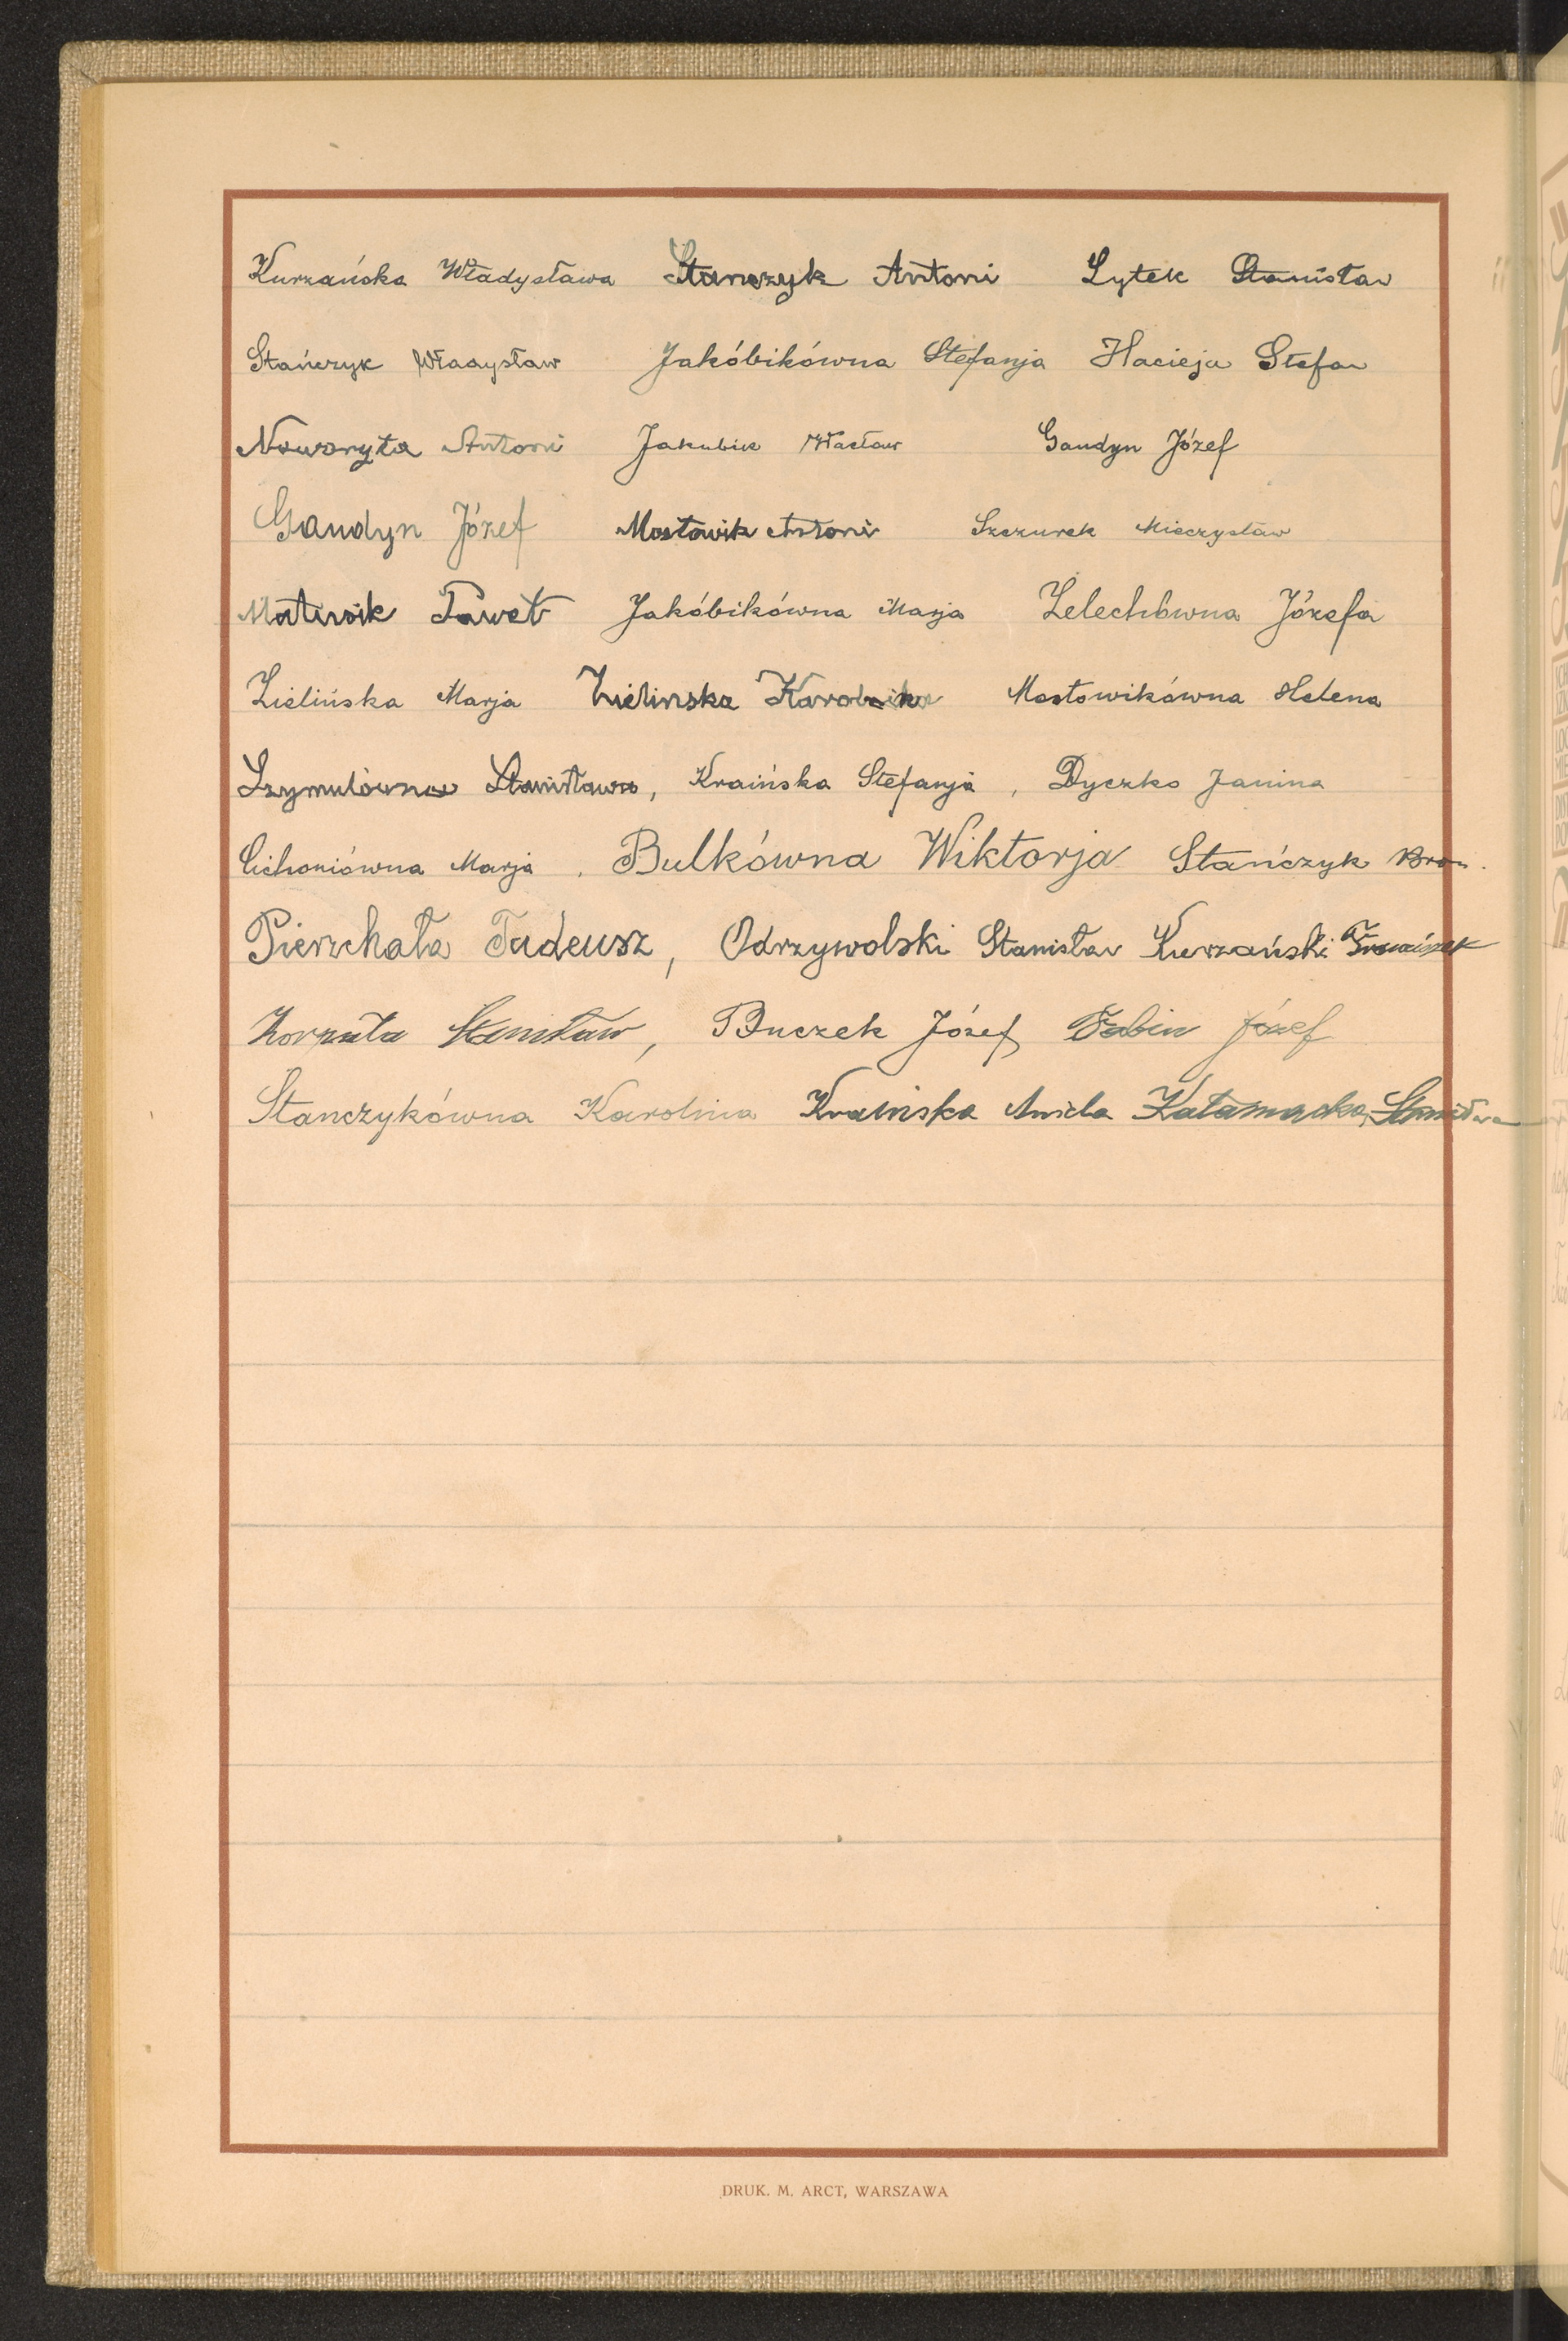 Kurzańska Władysława Stanczyk Antoni Sytek Stanisław
Stańczyk Władysław Jakóbikówna Stefanja Macieja Stefan
Noworyta Antoni Jakubik Wacław Gandyn Józef
Gandyn Józef Mostowik Antoni Szczurek Mieczysław
Matusik Paweł Jakóbikówna Marja Zelechówna Józefa
Zielińska Marja Zielinska Mostowikówna Helena
Szymulówna Stanisława, Kraińska Stefanja, Dyczko Janina
Cichoniówna Marja, Bulkówna Wiktorja Stańczyk Bron.
Pierzchała Tadeusz, Odrzywolski Stanisław Kurzański Franciszek
Stanisław, Buczek Józef Józef
Stanczykówna Karolina Krainska Aniela
DRUK. M. ARCT, WARSZAWA